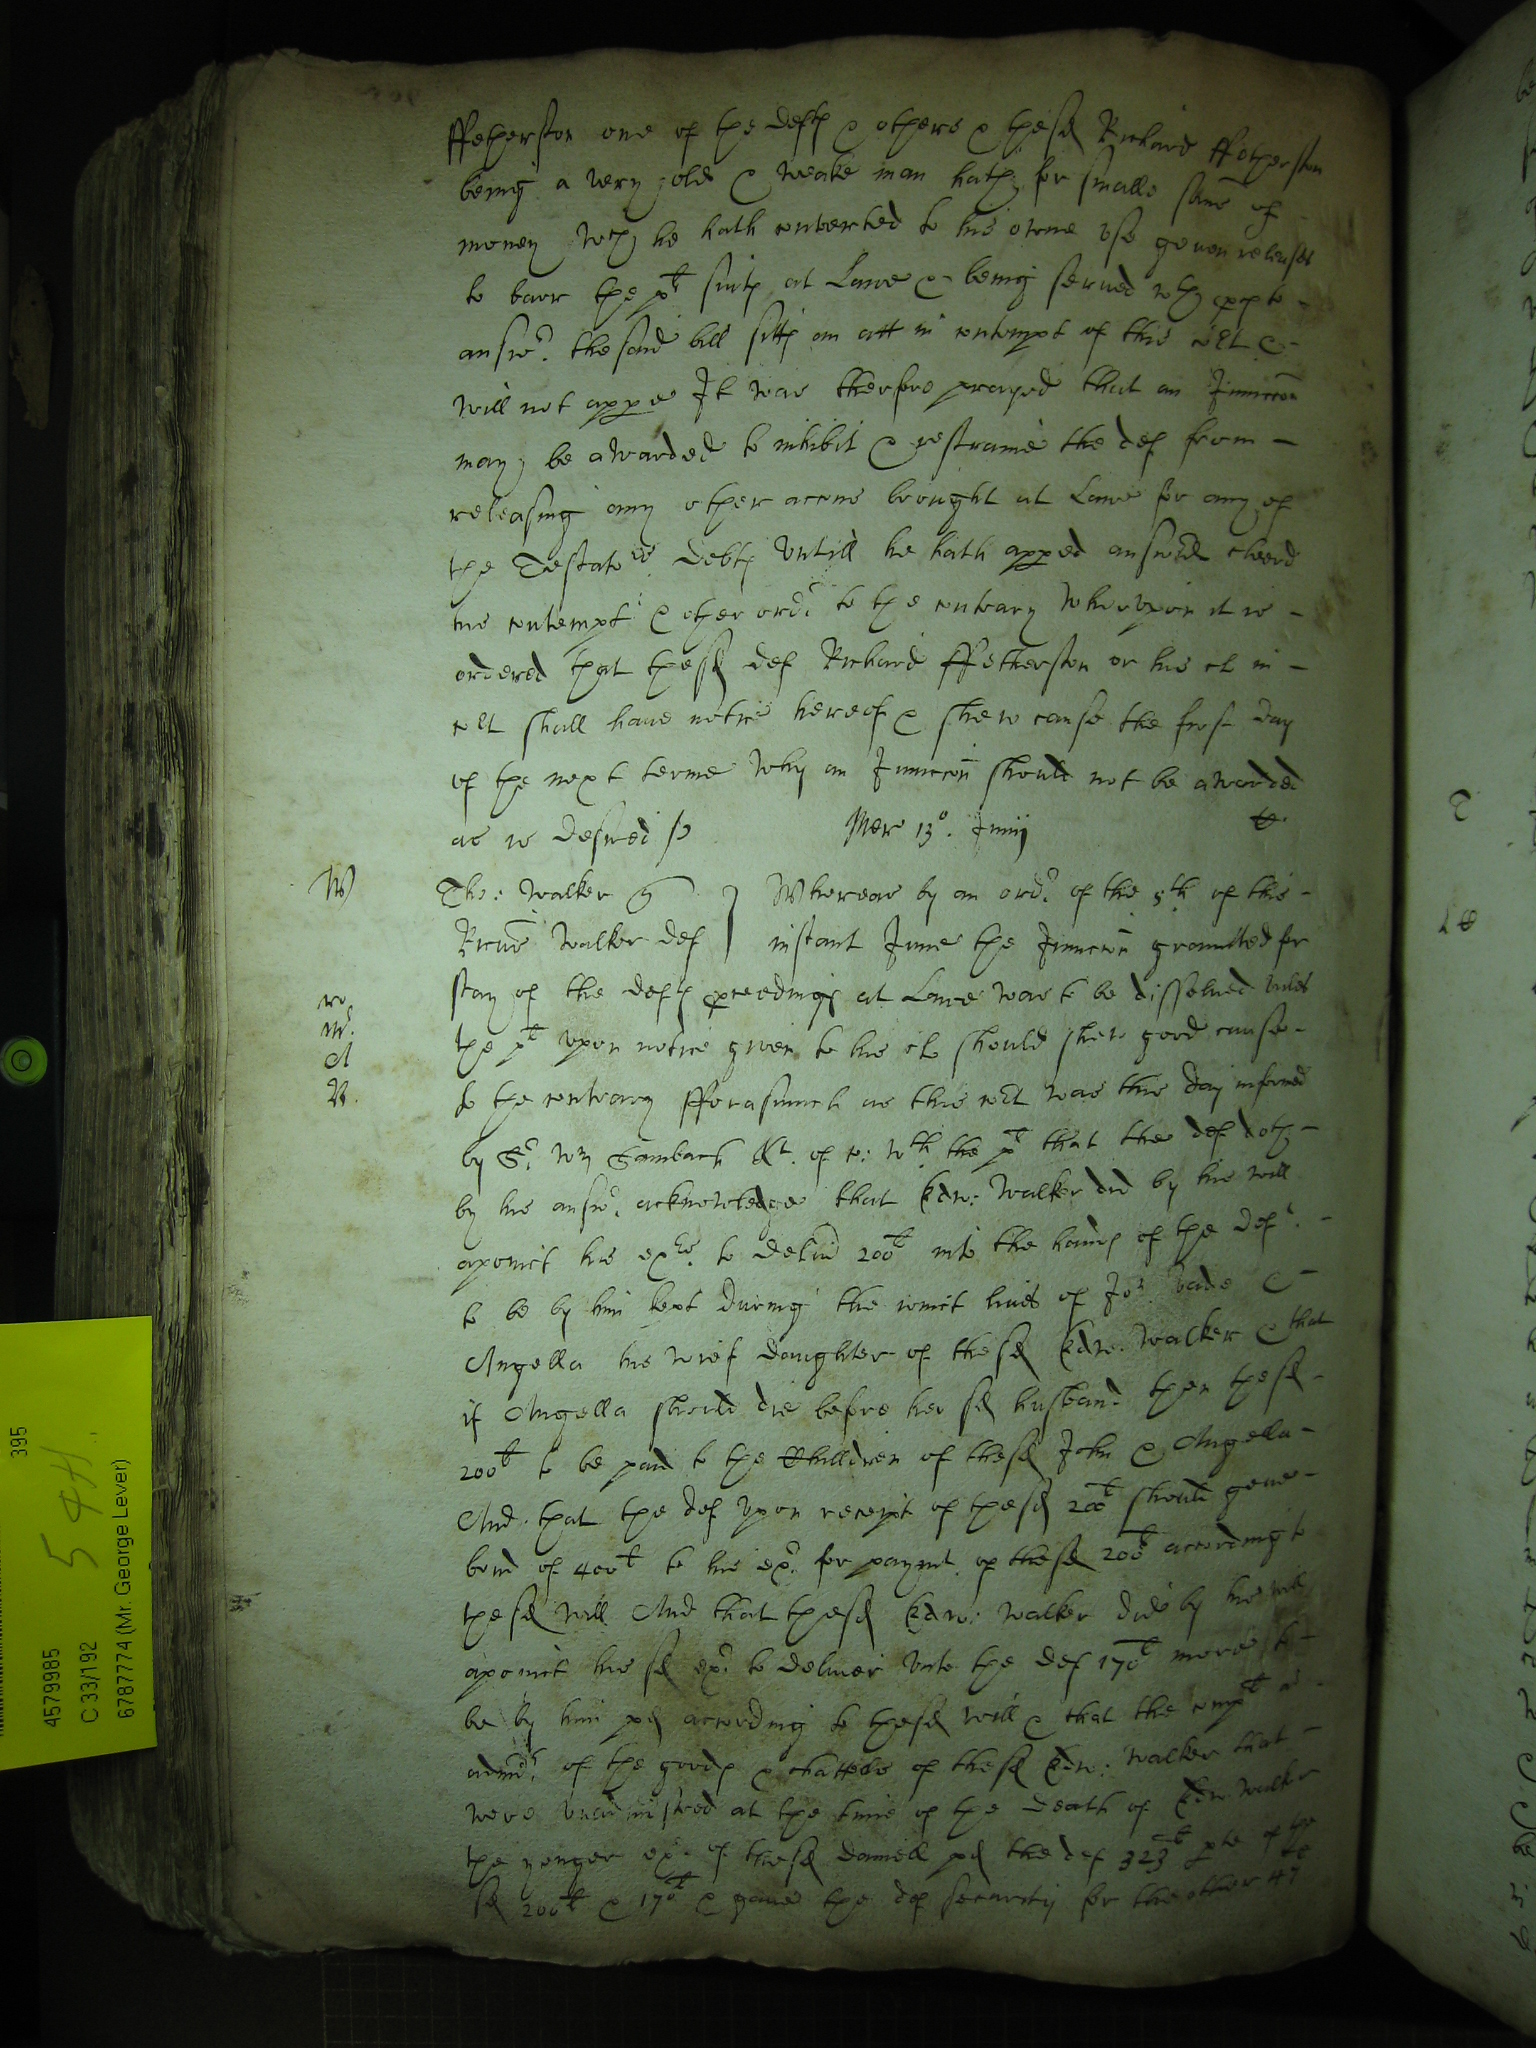 ffetherston one of the deftes & others & the sd Richard ffetherston
being a very olde & weake man hath for smalle sums of
money wch he hath converted to his owne use geven releases
to barr the plt suits at Lawe & being served wth proces to
answr. the said bill sitts an att in contempt of this cort &
will not appe It was therfore prayed that an Iniuccon
may be awarded to inhibit & restraine the def from
releasing any other accons brought at Lawe for any of
the Testators debts untill he hath apped answered cleerd
his contempt & other ordr to the contrary wherupon it is
ordered that the sd def Richard ffetherston or his cl in
cort shall have notice hereof & shew cause the first day
of the next terme why an Iniuccon should not be awarded
as is desired
Mer 13o. Junij
W
Tho: Walker
Whereas by an ordr of the 8th of this
Walker def
instant June the Iniuccon graunted for
stay of the defts proceedings at Lawe was to be dissolved unles
the plt upon notice given to his cl should shew good cause
to the contrary fforasmuch as this cort was this day informed
by Sr. Wm Sambach kt. of c: wth the plt that the def doth
by his answr. acknowledge that Edw: Walker did by his will
apoinct his exrs. to delivr 200l into the hands of the def.
to be by him kept during the ioinct lives of Jon. Vade &
Angella his wief daughter of the sd Edw. Walker & that
if Angella should die before her sd husband then the sd
200l to be paid to the Children of the sd John & Angella
And that the def upon receipt of the sd 200l should geve
bond of 400l to his exr. for paymt of the sd 200l according to
the sd will And that the sd Edw: Walker did by his will
apoinct his sd exr. to deliver unto the def 170l more to
be by him pd according to the sd will & that the complt as
admr. of the goods & chattells of the sd Edw: Walker that
were unadmistred at the time of the death of Edw: Walker
the yonger exr of the sd Daniell pd the def 323l pte of the
sd 200l & 170l & gave the def security for the other 47
4579985
C 33/192
6787774 (Mr. George Lever)
395